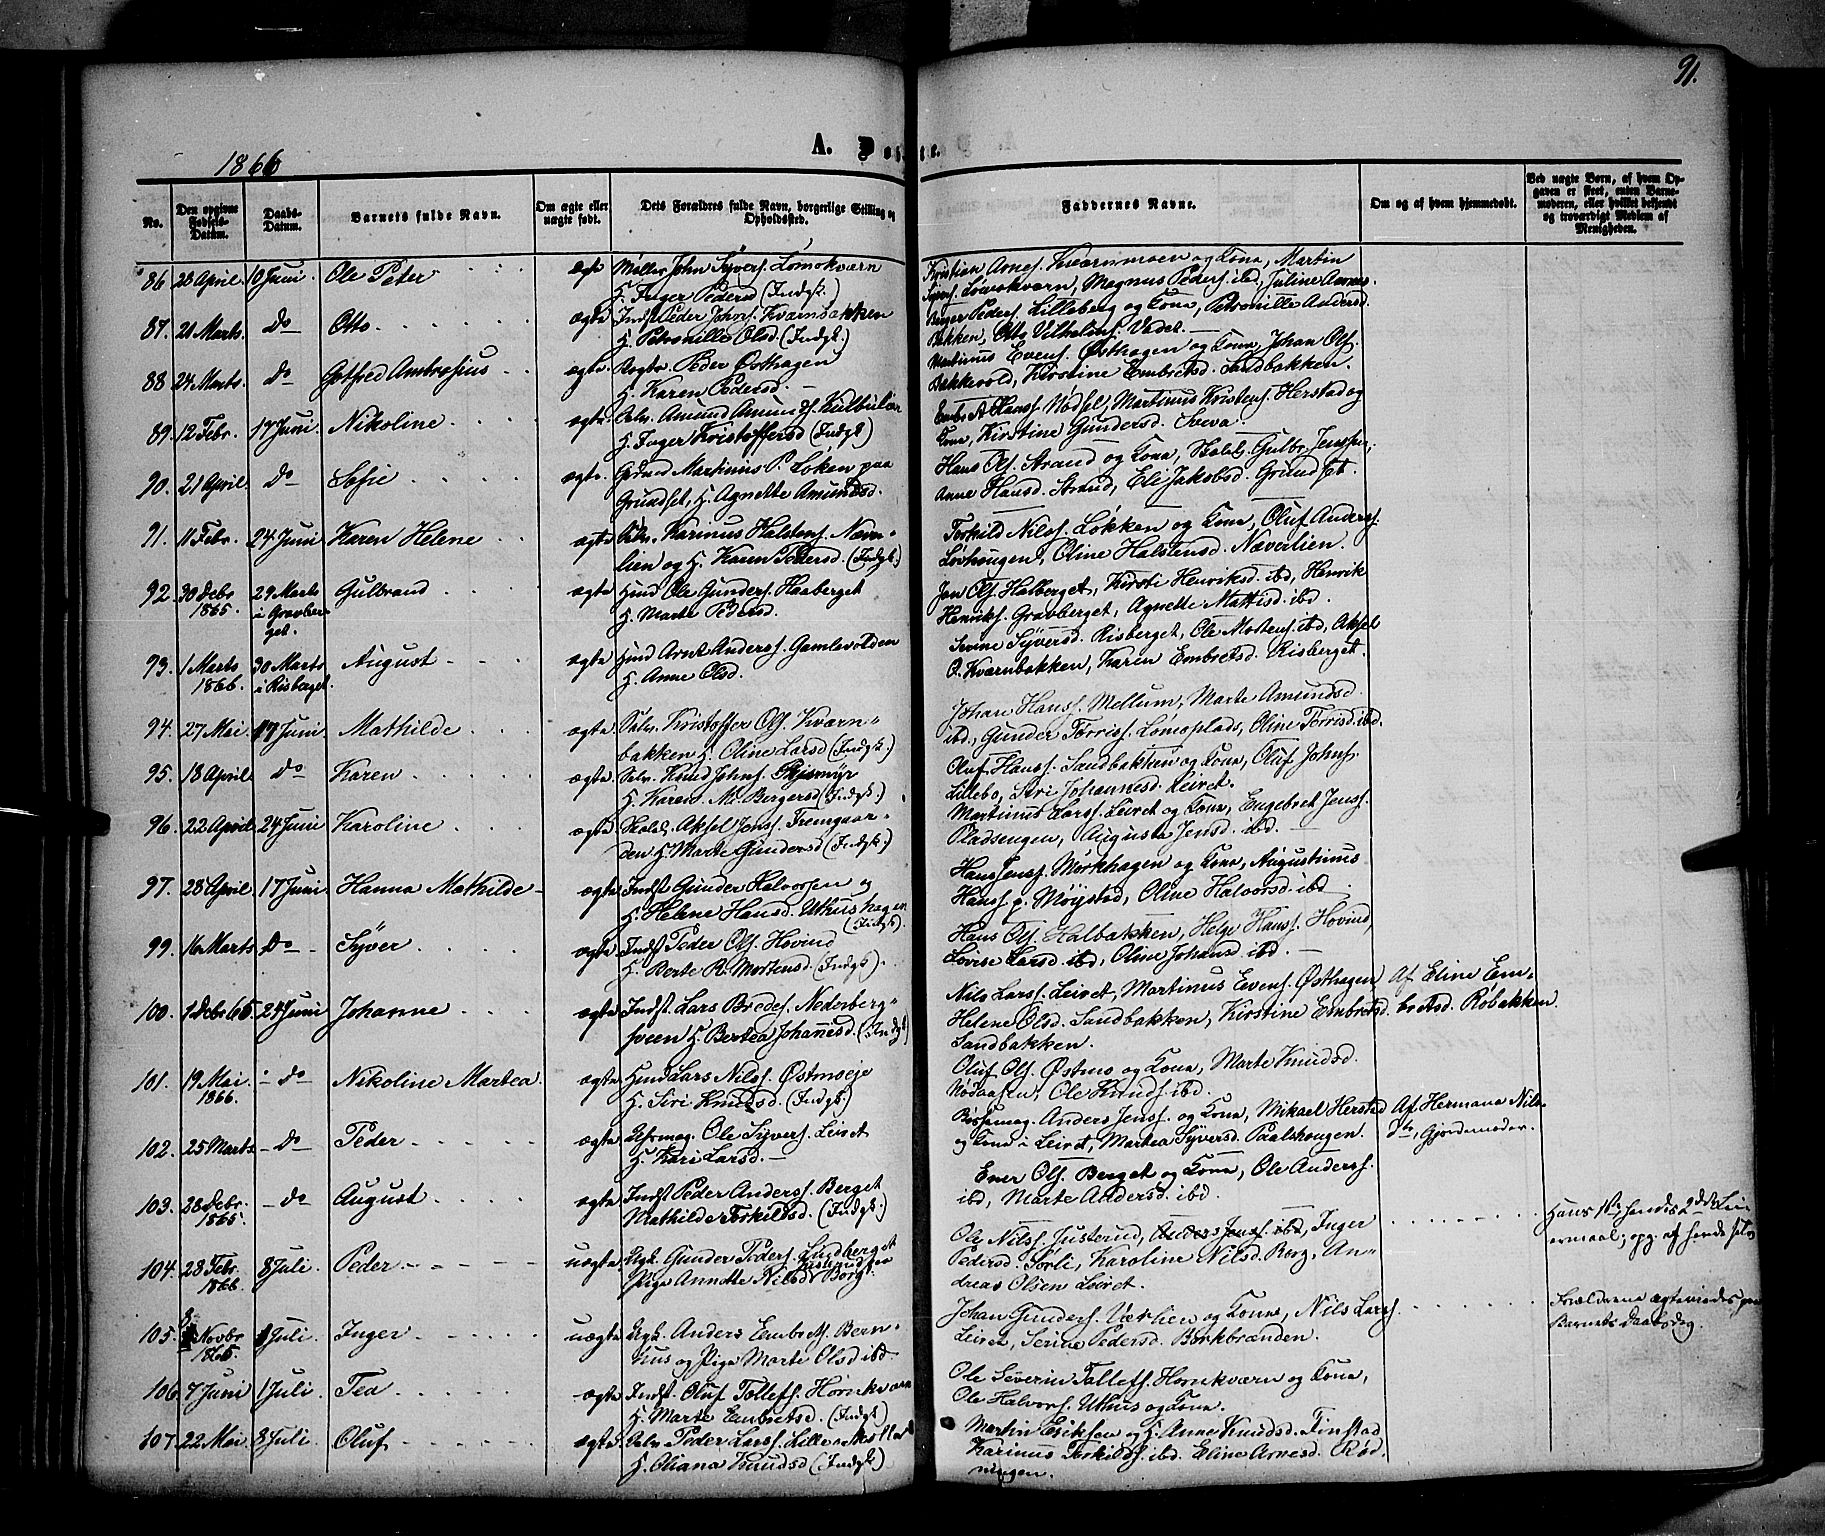 91.
1866
A. Døbte.
No.
Den opgivne Fødsels-Datum.
Daabs-Datum.
Barnets fulde Navn.
Om ægte eller uægte født.
Dets Forældres fulde Navn, borgerlige Stilling og Opholdssted.
Faddernes Navne.
Om og af hvem hjemmedøbt.
Ved uægte Børn, af hvem Opgaven er skeet, enten Barnemoderen, eller hvilket bekjendt og troværdigt Medlem af Menigheden.
86. 28 April. 10 Juni Ole Peter ægte Møller John Syvers. Lömokværn
H. Inger Pedersd (Indgk.)
Kristian Arnes. Kværnmoen og Kona, Martin
Syvers. Lömokværn, Magnus Peders. ibd, Juline Arnes.
87. 21 Marts. Do Otto ægte Indst Peder Johns. Kvarnbakken
H. Petronille Olsd. (Indgk.)
Berger Peders. Lilleberg og Kona, Petronille Andersd.
Bakken, Otto Vilhelms.
88 24 Marts. Do Gotfred Ambrosius ægte Peder Østhagen
H. Karen Pedersd.
Martinus Evens. Østhagen og Kona, Johan Ols.
Bakkevold, Kirstine Embretsd. Sandbakken.
89. 12 Febr. 17 Juni. Nikoline ægte Selv. Amund Amunds. Kulbulien
H. Inger Kristoffersd (Indgk)
Embret Hanss. Nödsel, Martinus Kristens. Herstad og
Kona, Kirstine Gundersd. Sveva.
90. 21 April. Do Sofie ægte Martinus P. Løken paa
Grundset, H. Agnette Amundsd.
Hans Ols. Strand og Kona, Skolel. Gulbr. Jenssen,
Anne Hansd. Strand, Eli Jakobsd. Grundset.
91. 11 Febr. 24 Juni Karen Helene ægte Selv. Karinus Halstens. Næver-
lien og H. Karen Pedersd. (Indgk.)
Torkild Nilss. Løkken og Kona, Oluf Anderss.
Lovhougen, Oline Halstensd. Næverlien.
92. 30 Debr 1865. 29 Marts i Gravberget. Gulbrand ægte Hmd Ole Gunders. Haaberget
H. Marte Pedersd.
Jon Ols. Halberget, Kirsti Henriksd. ibd, Henrik
Henriks. Gravberget, Agnette Mattisd. ibd.
93. 1 Marts 1866. 30 Marts i Risberget. August ægte Hmd Arnt Anderss. Gamlevolden
H. Anne Olsd.
Sevine Syversd. Risberget, Ole Mortens. ibd, Aksel
O. Kvarnbakken, Karen Embretsd. Risberget.
94. 27 Mai 17 Juni Mathilde ægte Selv. Kristoffer Ols. Kværn-
bakken H. Oline Larsd (Indgk.)
Johan Hanss. Mellum, Marte Amundsd.
ibd, Gunder Torriss. Lömoplads, Oline Torrisd. ibd.
95. 18 April Do Karen ægte Selv. Knud Johns.
H. Karen M. Bergersd (Indgk.)
Oluf Hanss. Sandbakken og Kona, Oluf Johns.
Lillebo, Siri Johannesd. Leiret.
96. 22 April 24 Juni Karoline ægte Skolel. Aksel Jonss. Fremgaar-
den H. Marte Gundersd (Indgk.)
Martinus Larss. Leiret og Kona, Engebret Jenss.
Pladsengen, Augusta Jensd. ibd.
97. 28 April 17 Juni. Hanna Mathilde ægte Indst Gunder Halvorsen og
H. Helene Hansd. Uthushagen (Indgk.)
Hans Jenss. Mørkhagen og Kona, Augustinus
Hanss. p. Møystad, Oline Halvorsd. ibd.
99. 16 Marts Do Syver ægte Indst Peder Ols. Hovind
H. Berte R. Mortensd. (Indgk).
Hans Ols. Halbakken, Helge Hanss. Hovind,
Lovise Larsd. ibd, Oline Johansd. ibd.
100. 1 Debr 65. 24 Juni Johanne ægte Indst. Lars Bredes. Nederberg-
sveen H. Bertea Johannesd. (Indgk)
Nils Larss. Leiret, Martinus Evens. Østhagen
Helene Olsd. Sandbakken, Kirstine Embretsd.
Sandbakken.
Af Eline Em-
bretsd. Røbakken.
101. 19 Mai 1866. Do Nikoline Martea. ægte Hmd Lars Nilss. Østmoeje
H. Siri Knudsd. (Indgk.)
Oluf Ols. Østmo og Kona, Marte Knudsd.
Nödaasen, Ole Knuds. ibd.
102. 25 Marts Do Peder ægte Ole Syvers. Leiret
H. Kari Larsd.
Bøssemag. Anders Jenss. og Kona, Mikael Herstad
og Kona i Leiret, Martea Syversd. Paalshougen.
Af Hermana Nils-
dtr, Gjordemoder.
103. 28 Debr. 1865. Do August ægte Indst Peder Anderss. Berget
Mathilde Torkildsd. (Indgk.)
Ener Ols. Berget og Kona, Ole Anderss.
ibd, Marte Andersd. ibd.
104. 28 Febr. 1866. 8 Juli. Peder uægte Ugk. Gunder Peders. Lundberget
Pige Annette Nilsd. Borg.
Ole Nilss. Justerud, Anders Jens. ibd, Inger
Pedersd. Sørli, Karoline Nilsd. Borg, An-
dreas Olsen Leiret.
Hans 1ste, hendes 2det Lei-
ermaal; opg. af hende selv.
105. 8 Novbr 1865. 1 Juli. Inger uægte Ugk. Anders Embrets. Bern-
hus og Pige Marte Olsd ibd.
Johan Gunders. Væslien og Kona, Nils Larss.
Leiret, Serine Pedersd. Birkbrænden.
Forældrene ægteviedes paa
Barnets Daabsdag.
106. 7 Juni 1 Juli. Tea ægte Indst. Oluf Tollefs. Hornkværn
H. Marte Embretsd. (Indgk)
Ole Severin Tollefs. Hornkværn og Kona,
Ole Halvors. Uthus og Kona.
107. 22 Mai 8 Juli. Oluf ægte Selv. Peder Larss. Lille
H. Oliana Knudsd (Indgk.)
Martin Eriksen og H. Anne Knudsd. Finstad
Karinus Torkilds. ibd. Eline Arnesd. Rød-
ningen.